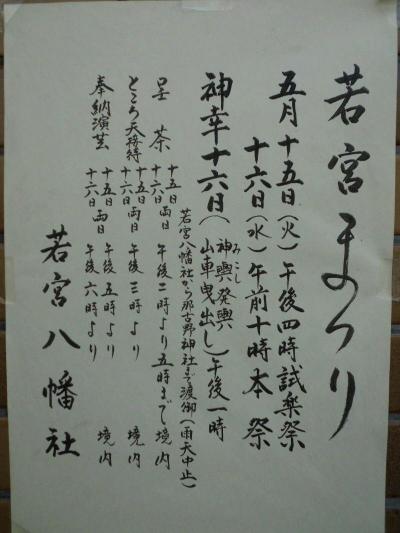 若宮まつり
五月十五日(火)午後四時試楽祭
十六日(水)午前十時本祭
神幸十六日(神輿発輿 山車曳出し)午後一時
みこし
若宮八幡社から那古野神社まで渡御(雨天中止)
呈茶 十五日 十六日 両日 午後二時より五時まで 境内
ところ天接待 十五日 十六日 両日 午後三時より 境内
奉納演芸 十五日 十六日 両日 午後五時より 午後六時より 境内
若宮八幡社